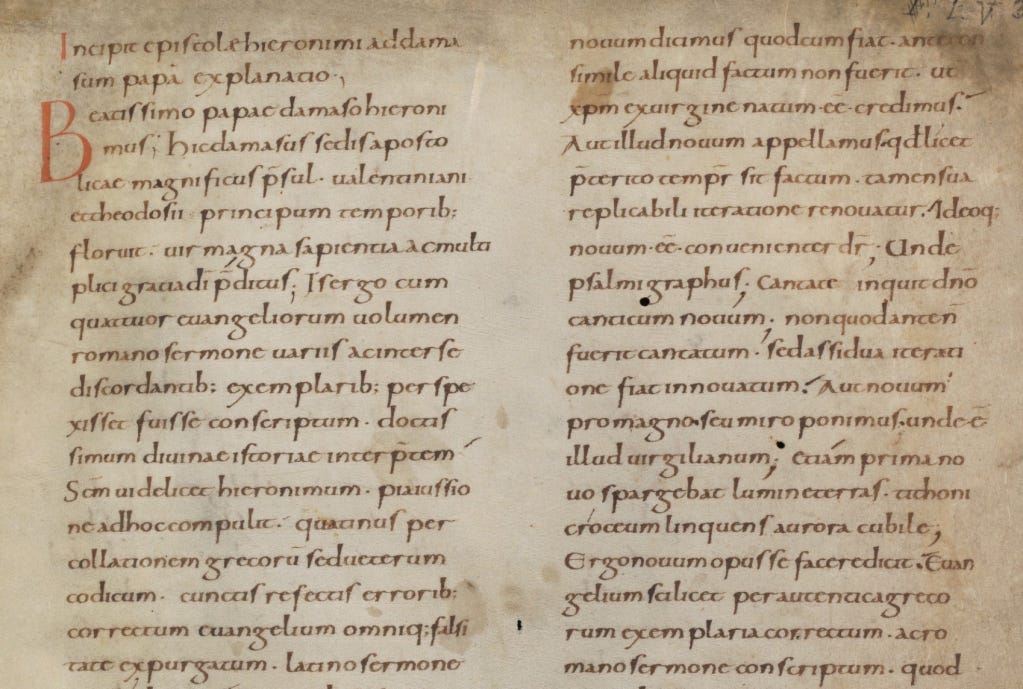 Incipit epistolæ hieronimi ad dama
sum papā explanatio.,
Beatissimo papae damaso hieroni
mus; hic damasus sedis aposto
licae magnificus p̄sul. ualentiniani
et theodosii principum temporib;
floruit. uir magna sapientia ac multi
plici gratia dī p̄ditus; Is ergo cum
quattuor euangeliorum uolumen
romano sermone uariis ac inter se
discordantib; exemplarib; perspe
xisset fuisse conscriptum. doctis
simum diuinae istoriae interp̄tem
Sc̄m uidelicet hieronimum. pia iussio
ne ad hoc compulit. quatinus per
collationem grecorū sed ueterum
codicum. cunctis refectis errorib;
correctum euangelium omniq; falsi
tate expurgatum. latino sermone
nouum dicimus quod cum fiat. ante
simile aliquid factum non fuerit. ut
xp̄m ex uirgine natum. eē. credimus.
Aut illud nouum appellamus. qđ licet
p̄terito temp̄r sit factum. tamen sua
replicabili iteratione renouatur. Ideoq;
nouum. eē. conuenienter dr̄; Unde
psalmigraphus; Cantate inquit dn̄o
canticum nouum; non quod an ten̄
fuerit cantatum. sed assidua iterati
one fiat innouatum. Aut nouum
pro magno. seu miro ponimus. unde ē
illud uirgilianum; Etiam prima no
uo spargebat lumine terras. tithoni
croceum linquens aurora cubile;
Ergo nouum opus se facere dicit. Euan
gelium scilicet per autentica greco
rum exemplaria correctum. ac ro
mano sermone conscriptum. quod